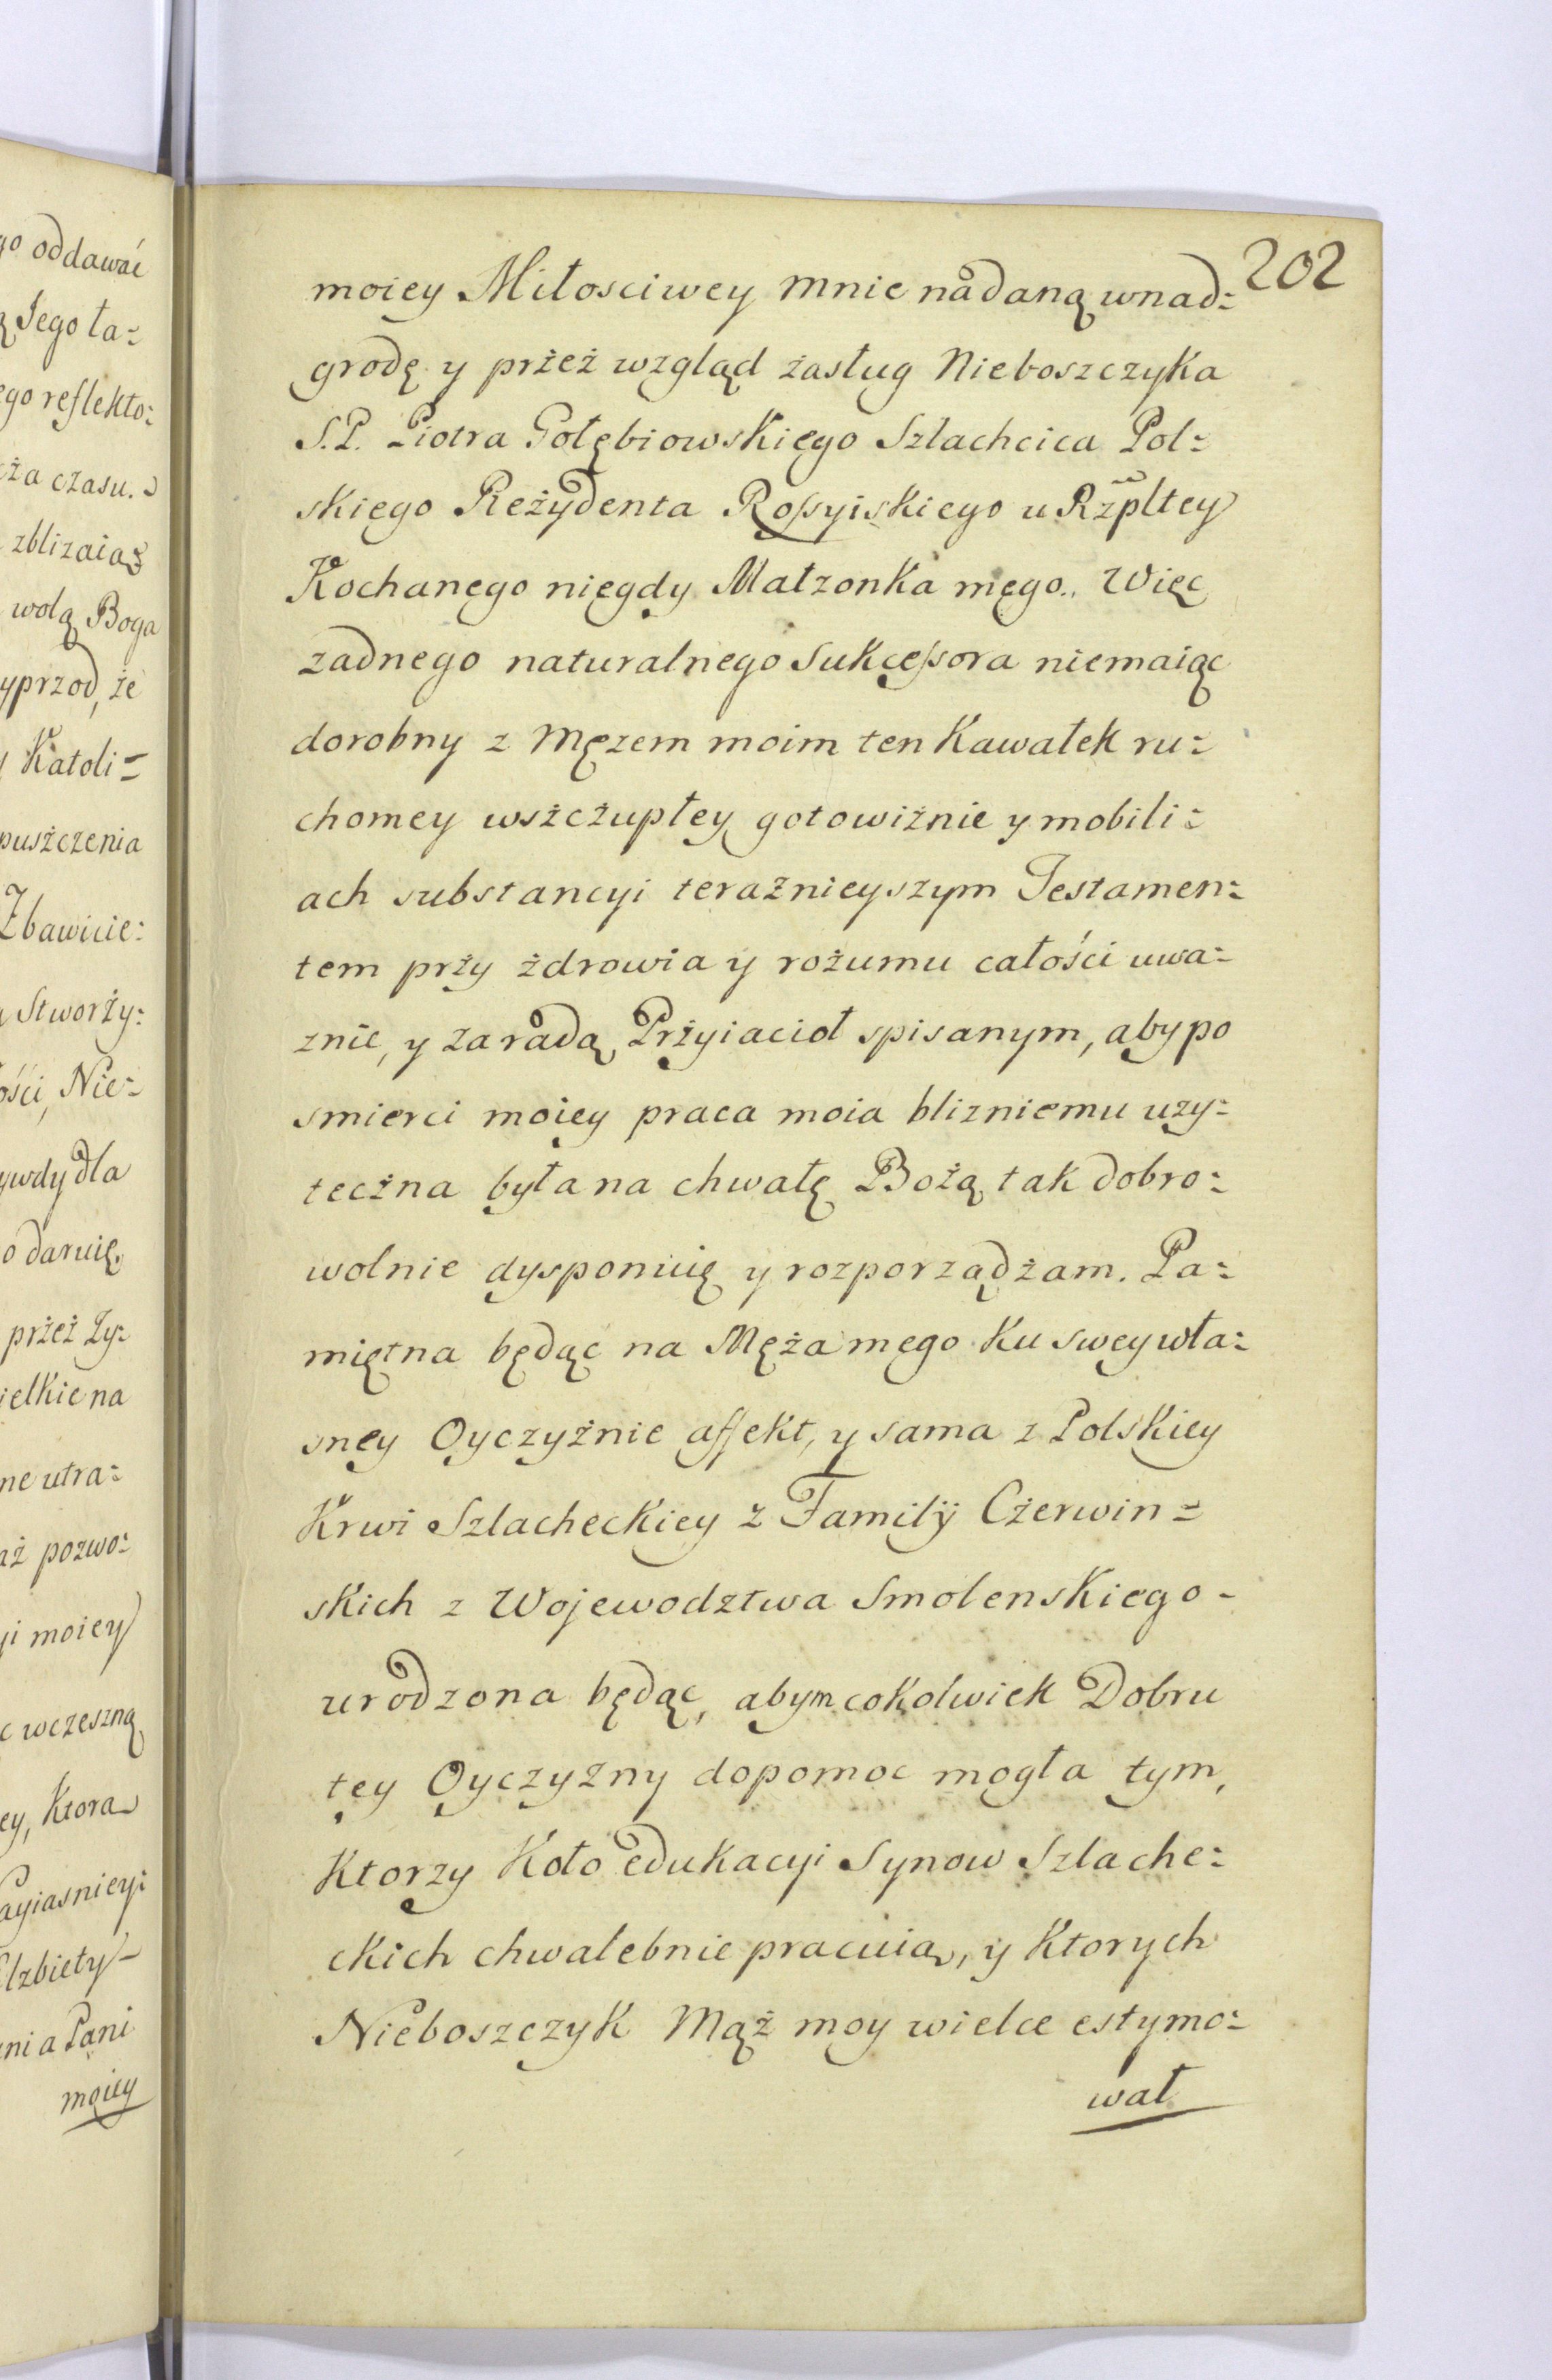 go oddawać
ą Jego ła=
ego reflekto:
ża czasu.
zblizaiąc
wolą Boga
yprzod, że
Katoli=
puszczenia
Zbawicie:
Stworży:
ości, Nie=
ywdy dla
o daruię,
przeż Zy:
ielkie na
ne utra=
aż pozwo=
yi moiey
c wczeszną
ey, Ktora
ayiasnieyi
Elzbiety
ania Pani
moiey
202
moiey Miłosciwey mnie nadaną wnad=
grodę y przeż wzgląd żasług Nieboszczyka
S.P. Piotra Gołębiowskiego Szlachcica Pol=
skiego Reżydenta Rossyiskiego u Rzpltey
Kochanego niegdy Małzonka mego.. Więc
zadnego naturalnego Sukcessora niemaiąc
dorobny z Męzem moim ten Kawałek ru=
chomey wszczupłey gotowiźnie y mobili=
ach substancyi teraznieyszym Testamen=
tem prży żdrowia y rożumu całości uwa=
znie, y za radą Prżyiacioł spisanym, aby po
smierci moiey praca moia blizniemu uzy=
teczna była na chwałę Bożą tak dobro=
wolnie dysponuię y rozporządżam. Pa=
miętna będąc na Męża mego Ku swey wła=
sney Oyczyżnie affekt, y sama z Polskiey
Krwi Szlacheckiey z Familÿ Cżerwin=
skich z Wojewodztwa Smolenskiego-
urodzona będąc, abym cokolwiek Dobru
tey Oyczyzny dopomoc mogła tym,
Ktorzy Koło edukacyi Synow Szlache=
ckich chwalebnie pracuią, y Ktorych
Nieboszczyk Mąż moy wielce estymo=
wał